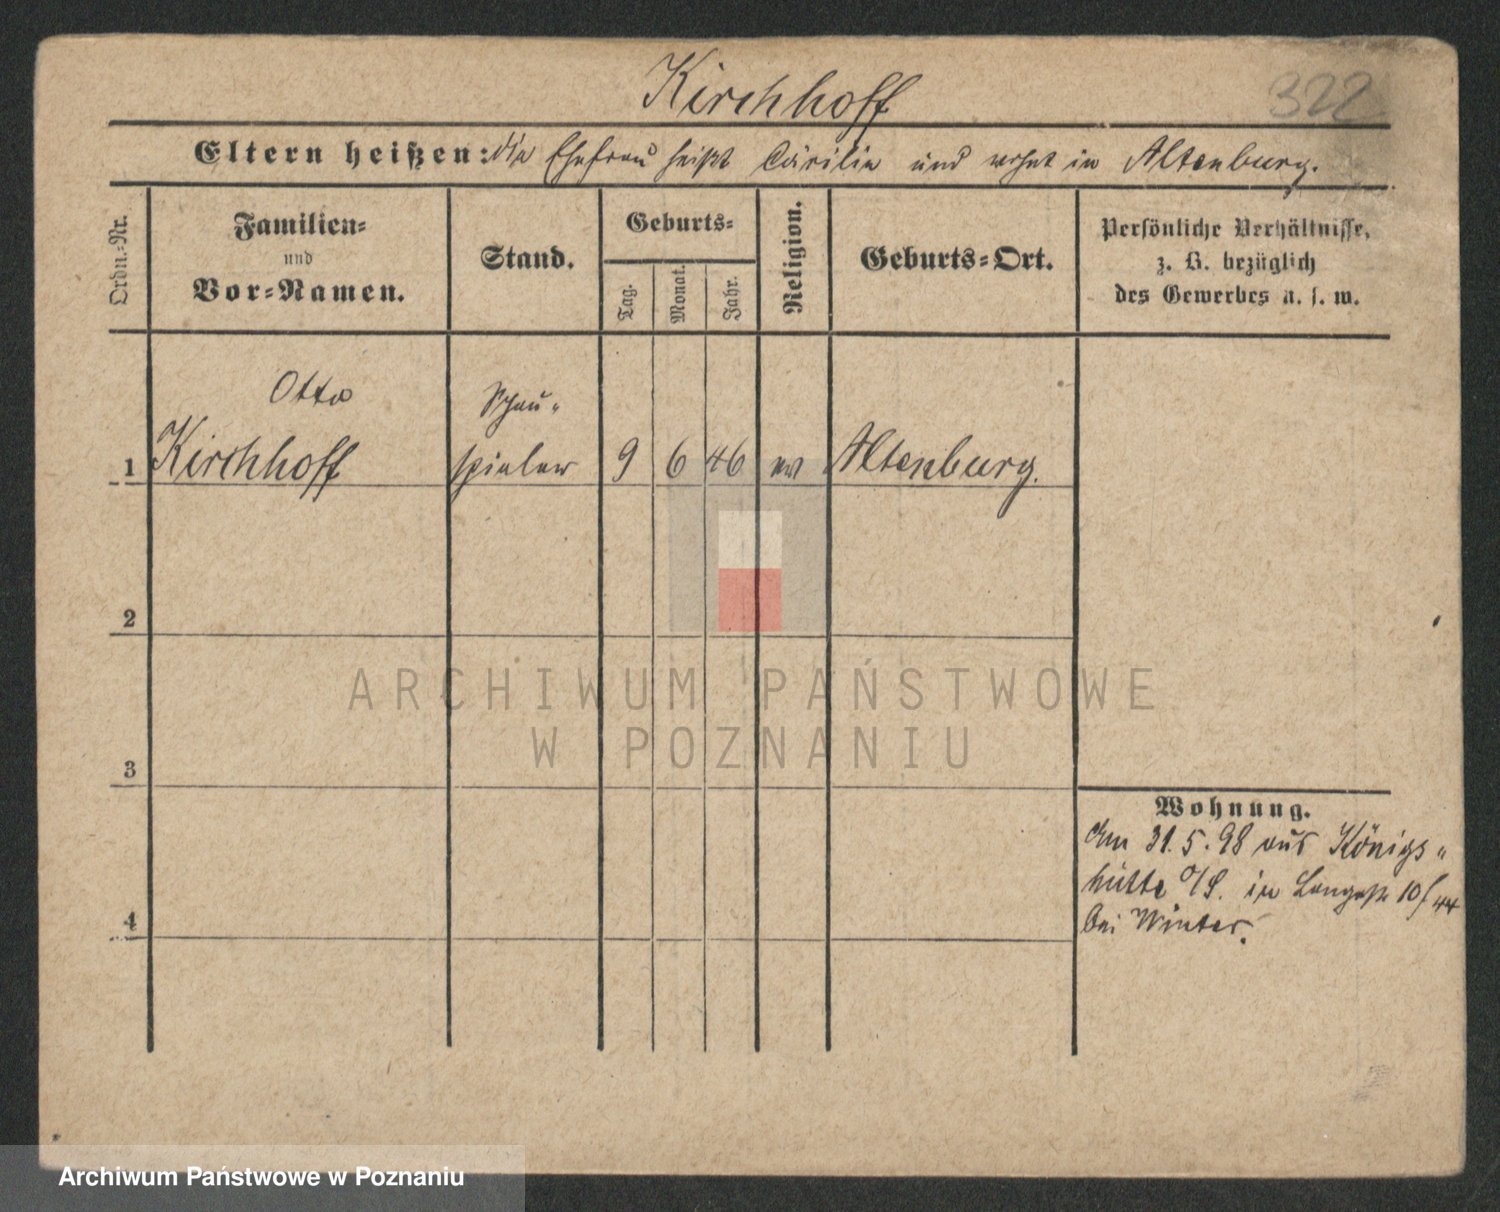 Kirchhoff
322
Eltern heißen: die Ehefrau heißt Cäcilie und wohnt in Altenburg.
Ordn.-Nr.
Familien-
und
Vor-Namen.
Stand.
Geburts-
Tag.
Monat.
Jahr.
Religion.
Geburts-Ort.
Persönliche Verhältnisse,
z. B. bezüglich
des Gewerbes u. s. w.
Otto
Schau-
1 Kirchhoff spieler 9 6 46 ev Altenburg.
2
ARCHIWUM PAŃSTWOWE
W POZNANIU
3
Wohnung.
Am 31.5.98 aus Königs-
hütte O/S. in Langestr 10/
bei Winter.
4
Archiwum Państwowe w Poznaniu